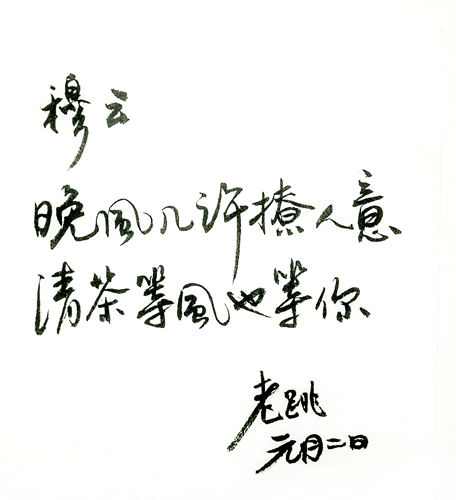 穆云
晚风几许撩人意
清茶等风也等你
老跳
元月二日